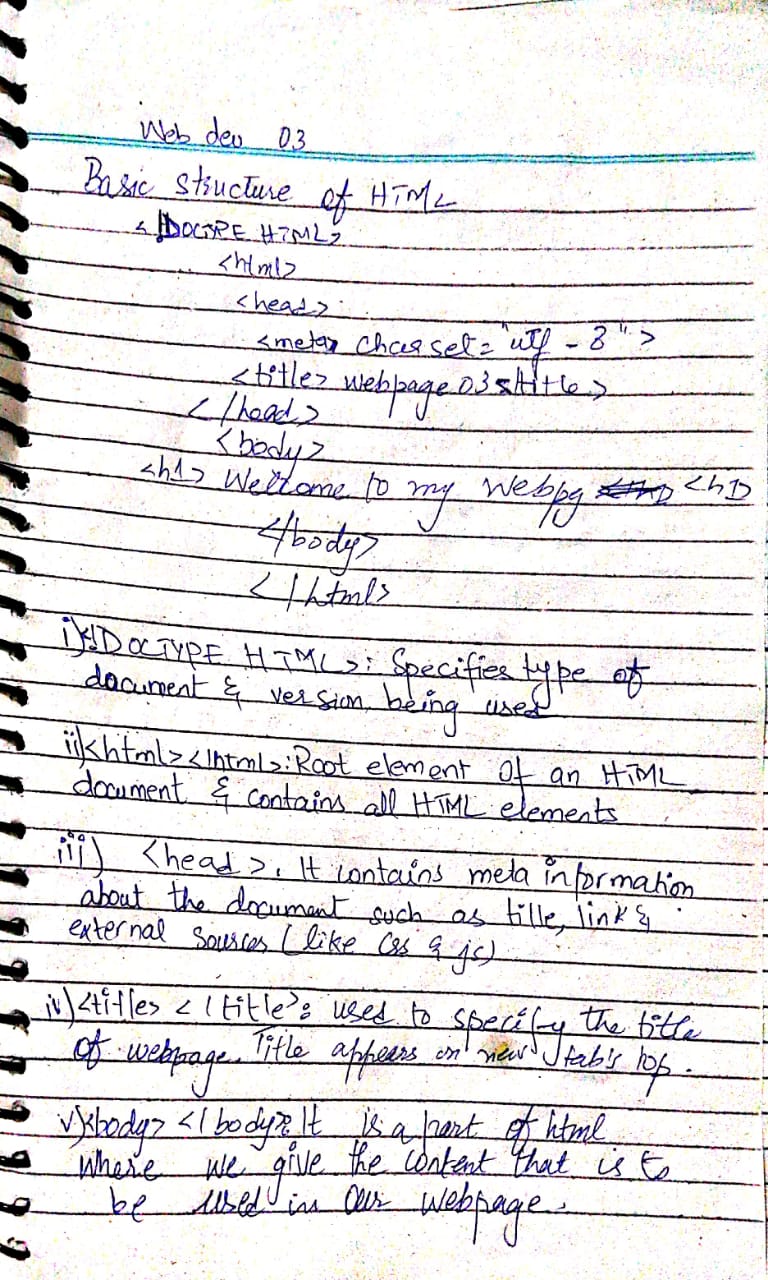 Web dev 03
Basic structure of HTML
<!DOCTYPE HTML>
<html>
<head>
<meta charset="utf-8">
<title> webpage 03 </title>
</head>
<body>
<h1> Welcome to my webpg <h1>
</body>
</html>
i) <!DOCTYPE HTML>: Specifies type of
document & version being used
ii) <html></html>: Root element of an HTML
document & contains all HTML elements
iii) <head>. It contains meta information
about the document such as title, link &
external sources (like css & js)
iv) <title> </title>: used to specify the title
of webpage. Title appears on new tab's top.
v) <body> </body>: It is a part of html
where we give the content that is to
be used in our webpage.